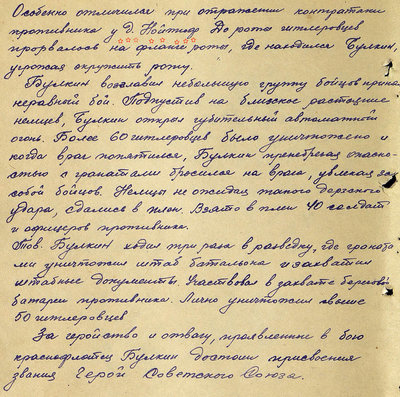 Особенно отличился при отражении контратаки
противника у д. Нойтиф. До роты гитлеровцев
прорвалось на фланге роты, где находился Булкин,
угрожая окружить роту.
Булкин возглавил небольшую группу бойцов принял
неравный бой. Подпустив на близкое растояние
немцев, Булкин открыл губительный автоматной
огонь. Более 60 гитлеровцев было уничтожено и
когда враг попятился, Булкин пренебрегая опасно-
стью с гранатами бросился на врага, увлекая за
собой бойцов. Немцы не ожидая такого дерзкого
удара, сдались в плен. Взято в плен 40 солдат
и офицеров противника.
Тов. Булкин ходил три раза в разведку, где граната-
ми уничтожил штаб батальона и захватил
штабные документы. Участвовал в захвате береговой
батареи противника. Лично уничтожил свыше
50 гитлеровцев
За геройство и отвагу, проявленные в бою
краснофлотец Булкин достоин присвоения
звания Герой Советского Союза.